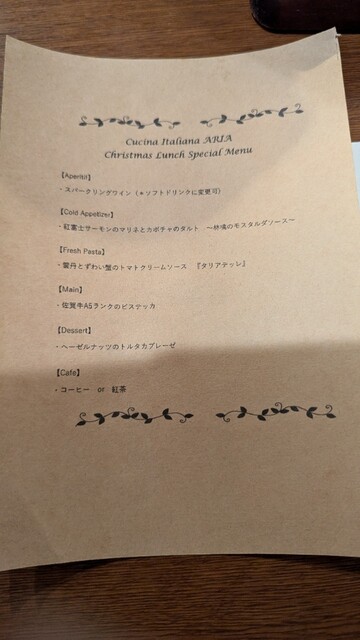 Cucina Italiana ARIA
Christmas Lunch Special Menu
【Aperitif】
・スパークリングワイン（※ソフトドリンクに変更可）
【Cold Appetizer】
・紅富士サーモンのマリネとカボチャのタルト　～林檎のモスタルダソース～
【Fresh Pasta】
・雲丹とずわい蟹のトマトクリームソース　『タリアテッレ』
【Main】
・佐賀牛A5ランクのビステッカ
【Dessert】
・ヘーゼルナッツのトルタカプレーゼ
【Cafe】
・コーヒー　or　紅茶